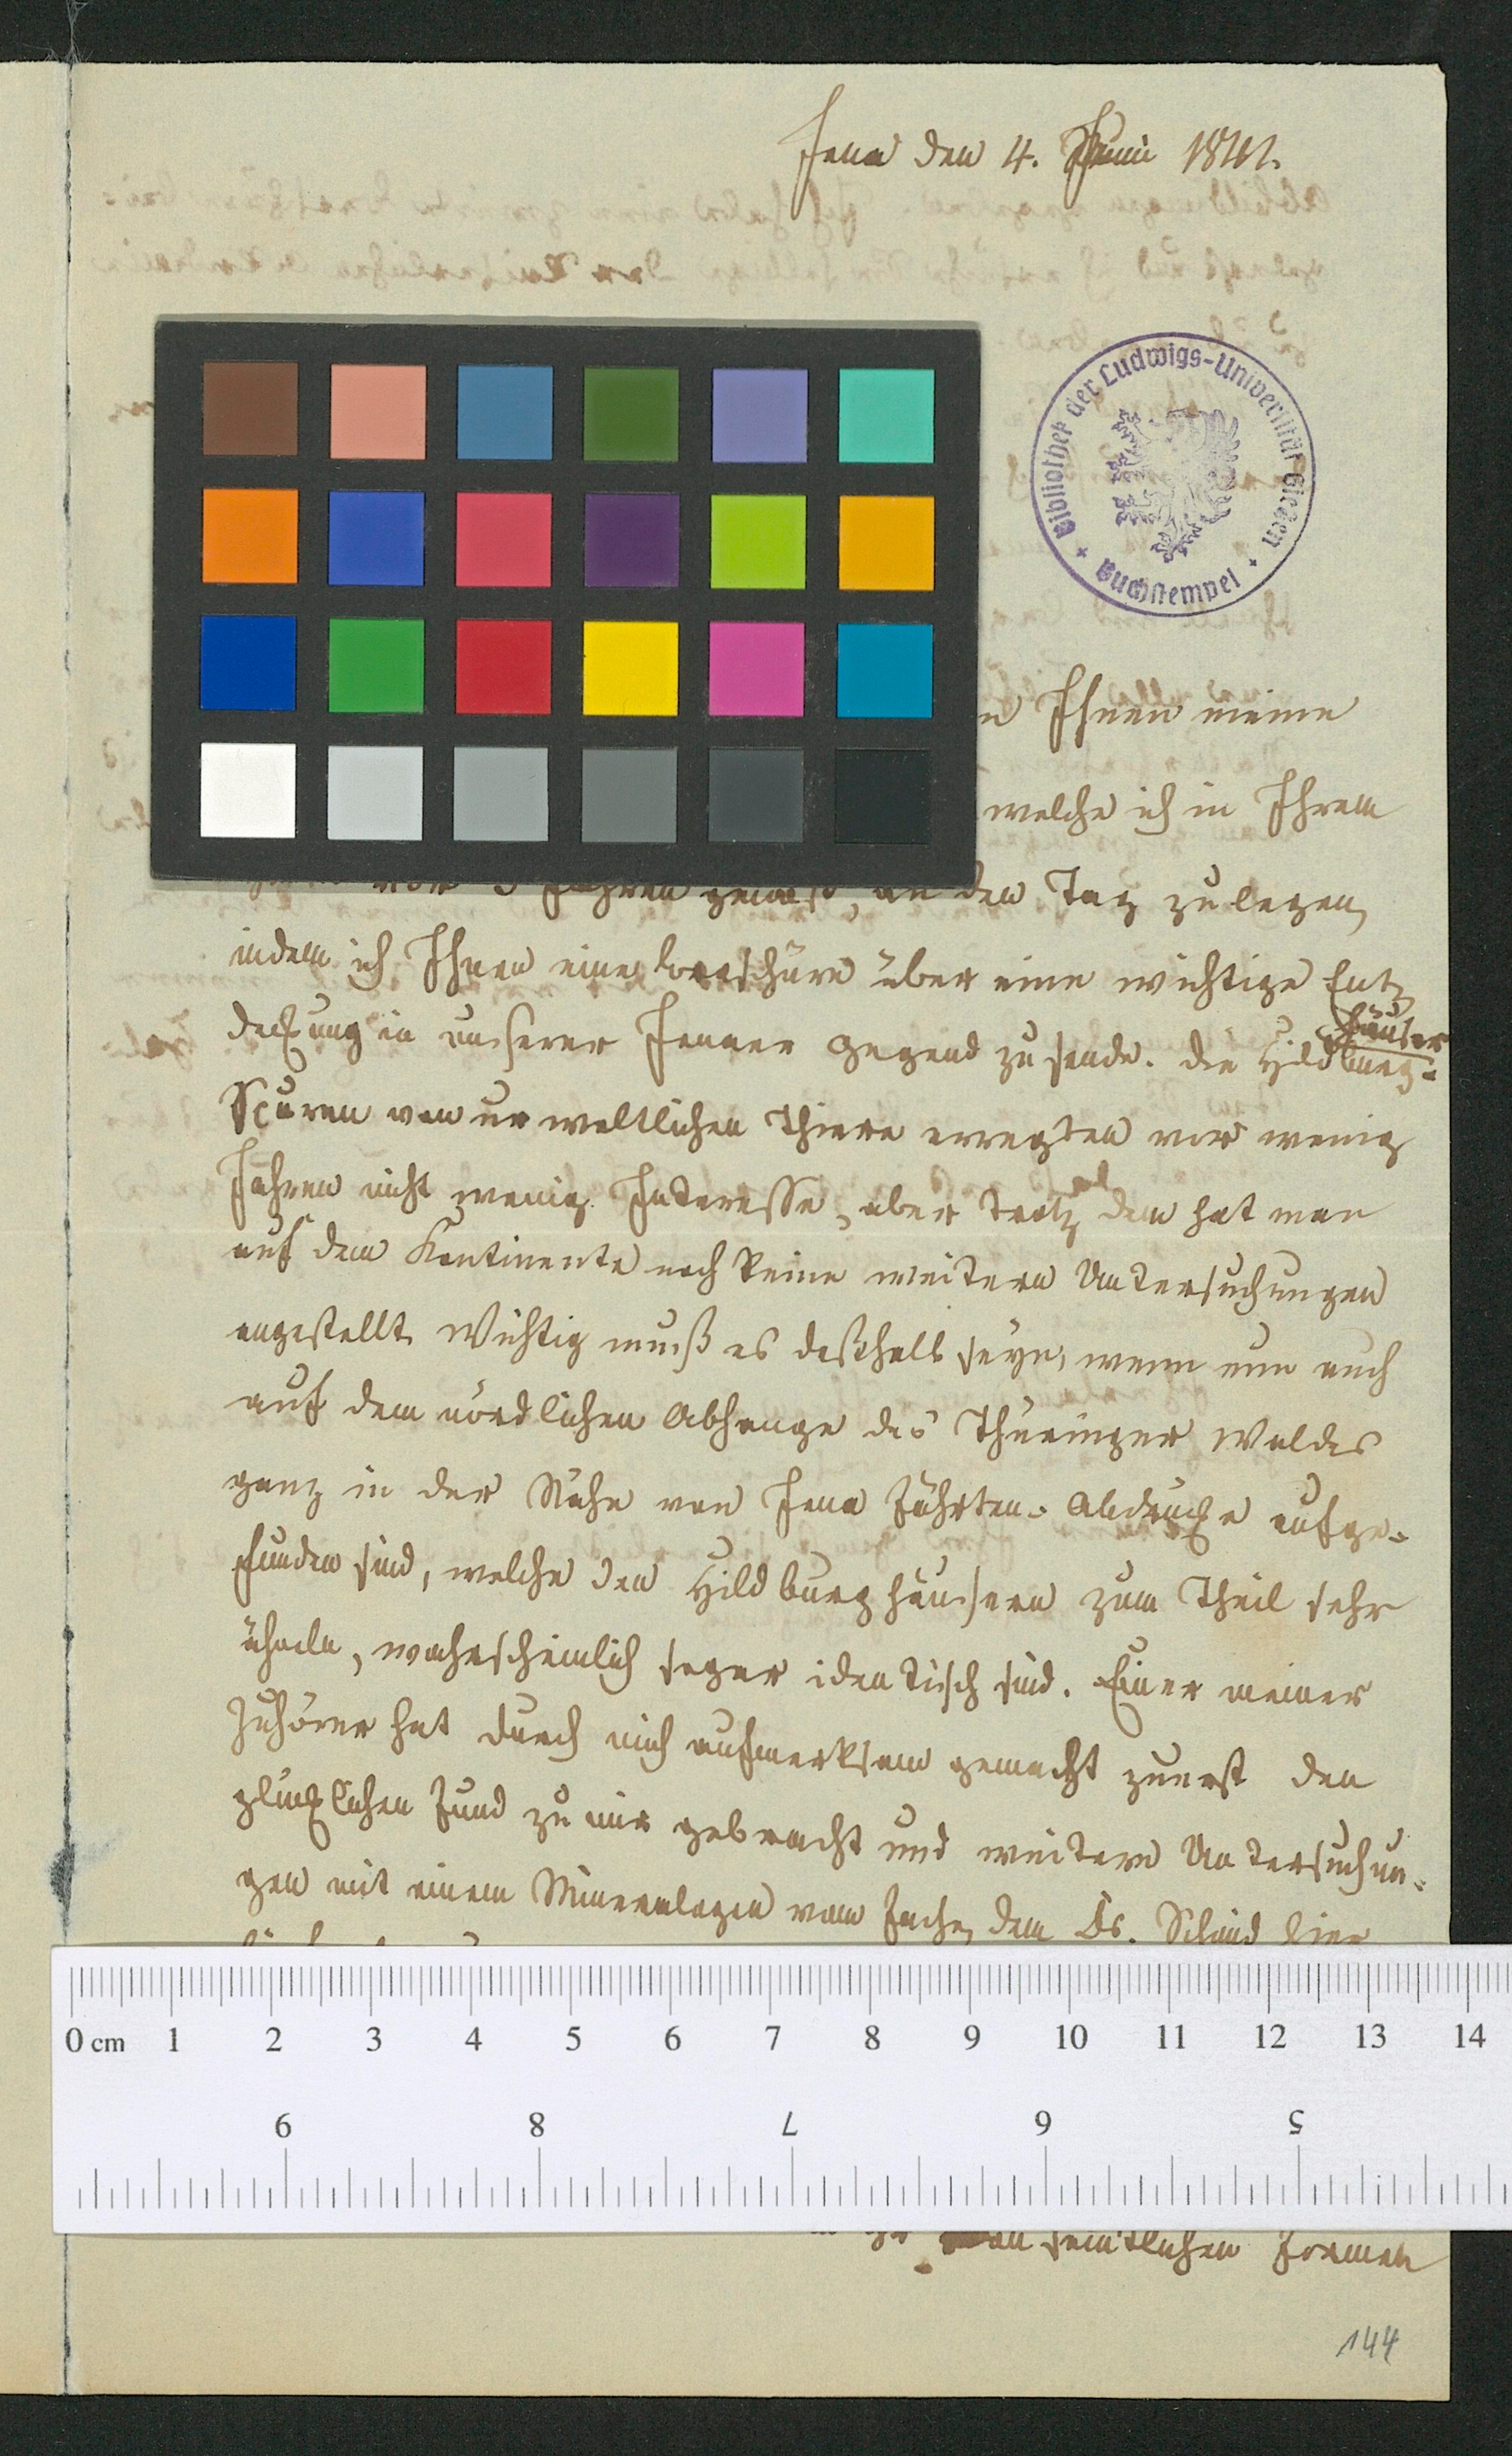 Jena den 4. Juni 1841.
Bibliothek der Ludwigs-Universität Gießen
Buchstempel
Ihnen meine
welche ich in Ihrem
vor 3 Jahren genoß, an den Tag zu legen,
indem ich Ihnen eine Broschüre über eine wichtige Ent-
deckung in unserer Jenaer Gegend zu sende. Die Hildburg-
häuser
Spuren von urweltlichen Thieren erregten vor wenig
Jahren nicht wenig Interesse, aber trotz dem hat man
auf dem Kontinente noch keine weitern Untersuchungen
angestellt. Wichtig muß es deßhalb seyn, wenn nun auch
auf dem nördlichen Abhange des Thüringer Waldes
ganz in der Nähe von Jena Fährten-Abdrücke aufge-
funden sind, welche den Hildburghäusern zum Theil sehr
ähneln, wahrscheinlich sogar identisch sind. Einer meiner
Zuhörer hat durch mich aufmerksam gemacht zuerst den
glücklichen Fund zu mir gebracht und weitere Untersuchun-
gen mit einem Mineralogen vom Fache, dem Dr. Schmid hier
0 cm 1 2 3 4 5 6 7 8 9 10 11 12 13 14
9 8 7 6 5
sämtlichen Formen
144